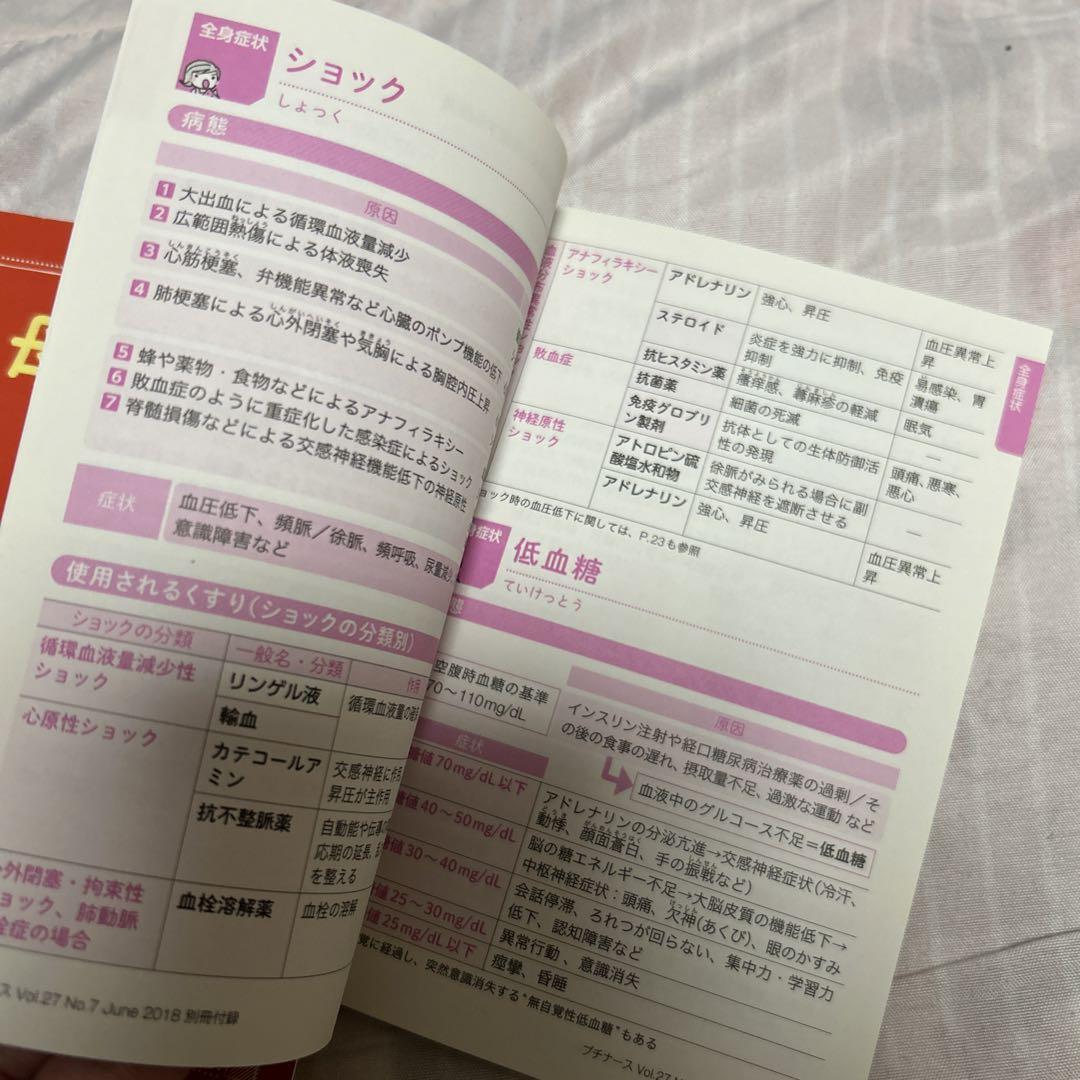 全身症状
ショック
しょっく
病態
原因
1 大出血による循環血液量減少
2 広範囲熱傷による体液喪失
ねっしょう
3 心筋梗塞、弁機能異常など心臓のポンプ機能の低下
しんきんこうそく
4 肺梗塞による心外閉塞や気胸による胸腔内圧上昇
しんがいへいそく
ききょう
5 蜂や薬物・食物などによるアナフィラキシー
6 敗血症のように重症化した感染症によるショック
7 脊髄損傷などによる交感神経機能低下の神経原性
症状
血圧低下、頻脈／徐脈、頻呼吸、尿量減少
意識障害など
使用されるくすり(ショックの分類別)
ショックの分類
一般名・分類
作用
循環血液量減少性
ショック
リンゲル液
輸血
循環血液量の
心原性ショック
カテコールア
ミン
交感神経に作用
昇圧が主作用
抗不整脈薬
自動能や伝導
応期の延長、
を整える
外閉塞・拘束性
ョック、肺動脈
栓症の場合
血栓溶解薬
血栓の溶解
ス Vol.27 No.7 June 2018 別冊付録
アナフィラキシー
ショック
アドレナリン
強心、昇圧
血圧異常上
昇
ステロイド
炎症を強力に抑制、免疫
抑制
易感染、胃
潰瘍
抗ヒスタミン薬
瘙痒感、蕁麻疹の軽減
眠気
敗血症
抗菌薬
細菌の死滅
―
免疫グロブリ
ン製剤
抗体としての生体防御活
性の発現
頭痛、悪寒、
悪心
神経原性
ショック
アトロピン硫
酸塩水和物
徐脈がみられる場合に副
交感神経を遮断させる
―
アドレナリン
強心、昇圧
血圧異常上
昇
ョック時の血圧低下に関しては、P.23も参照
全身症状
身症状
低血糖
ていけっとう
態
空腹時血糖の基準
70～110mg/dL
原因
インスリン注射や経口糖尿病治療薬の過剰／そ
の後の食事の遅れ、摂取量不足、過激な運動 など
血液中のグルコース不足＝低血糖
症状
糖値70mg/dL以下
糖値40～50mg/dL
アドレナリンの分泌亢進→交感神経症状(冷汗、
動悸、顔面蒼白、手の振戦など)
どうき
がんめんそうはく
しんせん
値30～40mg/dL
脳の糖エネルギー不足→大脳皮質の機能低下→
中枢神経症状：頭痛、欠神(あくび)、眼のかすみ
けっしん
会話停滞、ろれつが回らない、集中力・学習力
低下、認知障害など
値25～30mg/dL
異常行動、意識消失
値25mg/dL以下
痙攣、昏睡
覚に経過し、突然意識消失する“無自覚性低血糖”もある
プチナース Vol.27